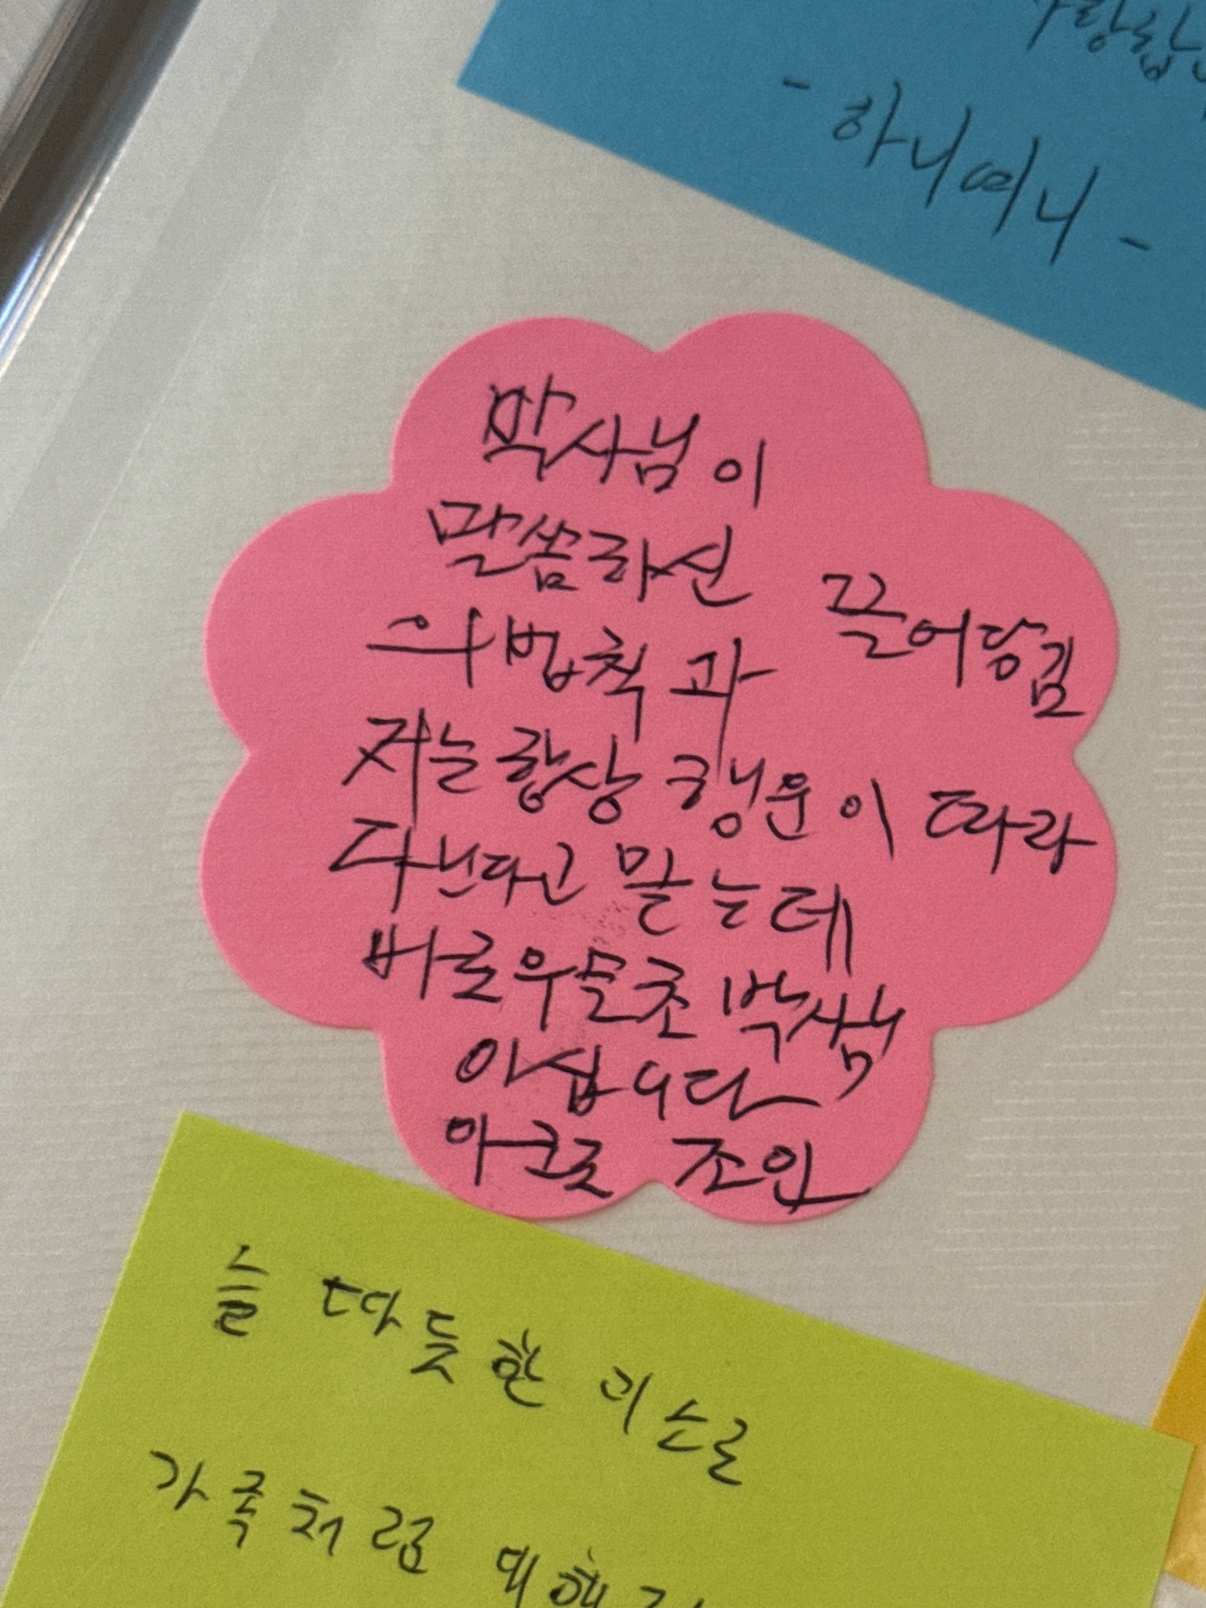 - 하니여니 -
박사님이
말씀하신 끌어당김
의 법칙과
저는 항상 행운이 따라
다닌다고 믿는데
바로 우들초 박사님
이십니다
아크로 조인
늘 따듯한 미소로
가족처럼 대해